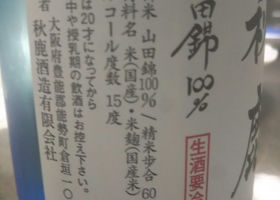 田錦100%
生酒要冷
米 山田錦100%/精米歩合60
料名 米(国産)・米麹(国産米)
コール度数 15度
は20才になってから
中や授乳期の飲酒はお控え下さい。
大阪府豊能郡能勢町倉垣一〇
者 秋鹿酒造有限会社